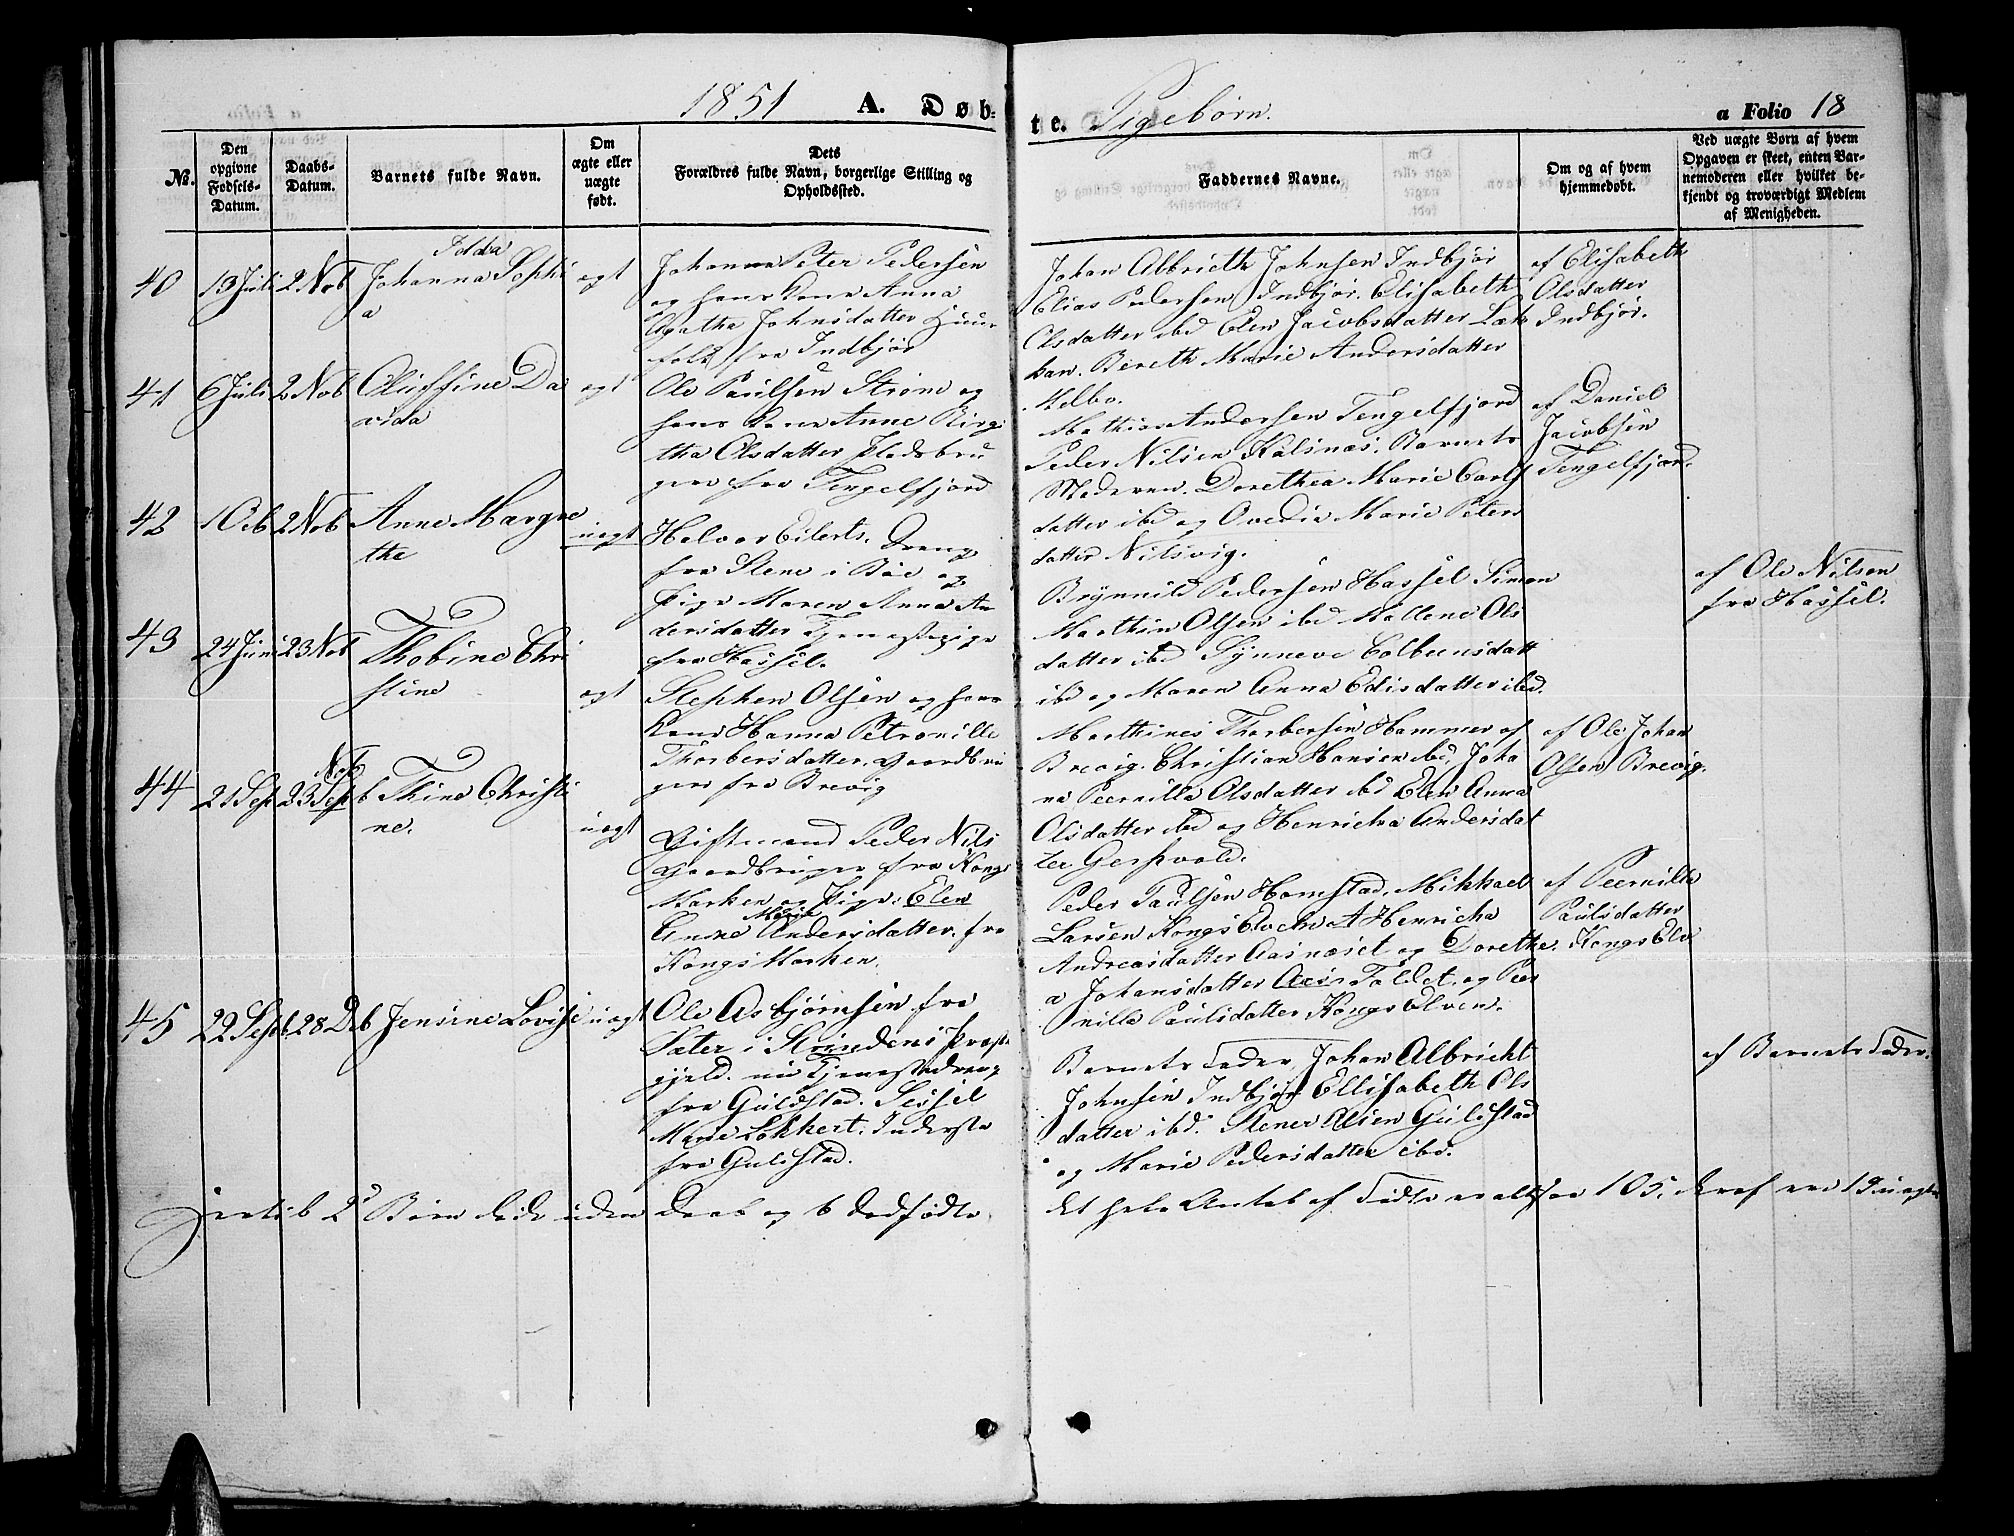 1851 A. Døb-
te. Pigebørn.
a Folio 18
No.
Den opgivne Fødsels-Datum.
Daabs-Datum.
Barnets fulde Navn.
Om ægte eller uægte født.
Dets Forældres fulde Navn, borgerlige Stilling og Opholdssted.
Faddernes Navne.
Om og af hvem hjemmedøbt.
Ved uægte Børn af hvem Opgaven er skeet, enten Barnemoderen eller hvilket bekjendt og troværdigt Medlem af Menigheden.
40
13 Juli
2 Nob
Johanna Sophi
a
ægt
Johan Peter Pedersen
og hans Kone Anna
Agatha Johnsdatter Huus-
folk fra Indbjør
Johan Albrieth Johnsen Indbjør
Elias Pedersen Indbjør. Elisabeth
Olsdatter ibd Elen Jacobsdatter
Bereth Marie Andersdatter
Melbo.
af Elisabeth
Olsdatter
Indbjør.
41
6 Juli
2 Nob
Oluffine Da
vida
ægt
Ole Paulsen Strøm og
hans Kone Anne Birgi
tha Olsdatter Pladsbru
gere fra Tengelfjord
Mathias Andersen Tengelfjord
Peder Nilsen Kalsnæs. Barnets
Moderen. Dorethea Marie Carls
datter ibd og Ovedia Marie Peters
datter Nilsvig.
af Daniel
Jacobsen
Tengelfjord.
42
1 Ocb
2 Nob
Anne Margre
the
uægt
Halvor Eilerts. Dreng
fra Stene i Bøe og
Pige Maren Anna An
dersdatter Tjenestepige
fra Hassel.
Brynnild Pedersen Hassel Simon
Marthin Olsen ibd Mallene Ols
datter ibd Synneve Colbensdatt
ibd og Maren Anna Edisdatter ibd.
af Ole Nilsen
fra Hassel.
43
24 Juni
23 Nob
Thobine Chri
stine
ægt
Stephen Olsen og hans
Kone Hanna Petronille
Thorbersdatter. Gaardbru
gere fra Brevig
Marthines Thorbersen Hammer af
Brevig. Christian Hansen ibd, Joha
na Peernilla Olsdatter ibd Elen Anna
Olsdatter ibd og Henricha Andersdat
ter
af Ole Johan
Olsen Brevig.
44
21 Sept
23 Sept Nob
Thine Christi
ne.
uægt
Giftmand Peder Nils
Gaardbruger fra Kongs
Marken og Pige: Elen
Anne Marie Andersdatter. fra
Kongs Marken.
Peder Paulsen Hamstad. Mikkael
Larsen Kongs Elven A Henricha
Andreasdatter Aasnæset og Dorethe
a Johansdatter Aas Foldet. og Peer
nille Paulsdatter Kongs Elven.
af Peernille
Paulsdatter
Kongs Elv
45
22 Septb.
28 Dcb
Jensine Lovise
uægt
Ole Asbjørnsen. fra
Sæter i Strindens Præst
gjeld. nu Tjenestedreng
fra Guldstad. Sessel
Marie Lokkert. Inderste
fra Guldstad.
Barnets Fader, Johan Albricht
Johnsen Indbjør Ellisabeth Ols
datter ibd. Stener Olsen Guldstad
og Marie Pedersdatter ibd.
af Barnets Fader.
Desuden 2 Børn døde uden Daab og 6 dødfødte.
det hele Antal af Fødte er altsaa 105. deraf ere 19 uægte